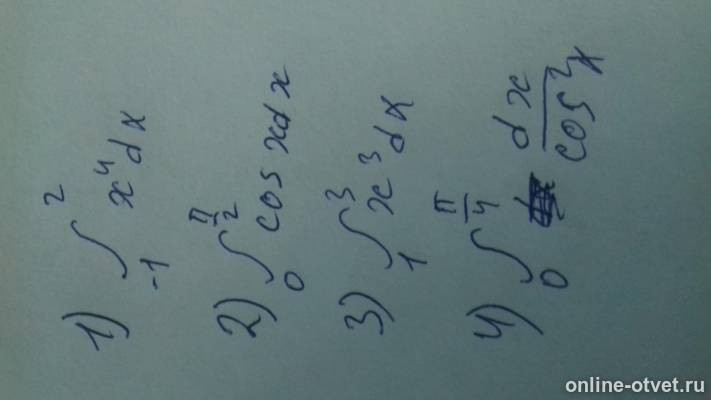 1) ∫₋₁² x⁴ dx
2) ∫₀^(π/2) cos x dx
3) ∫₁³ x³ dx
4) ∫₀^(π/4) dx/cos²x
online-otvet.ru